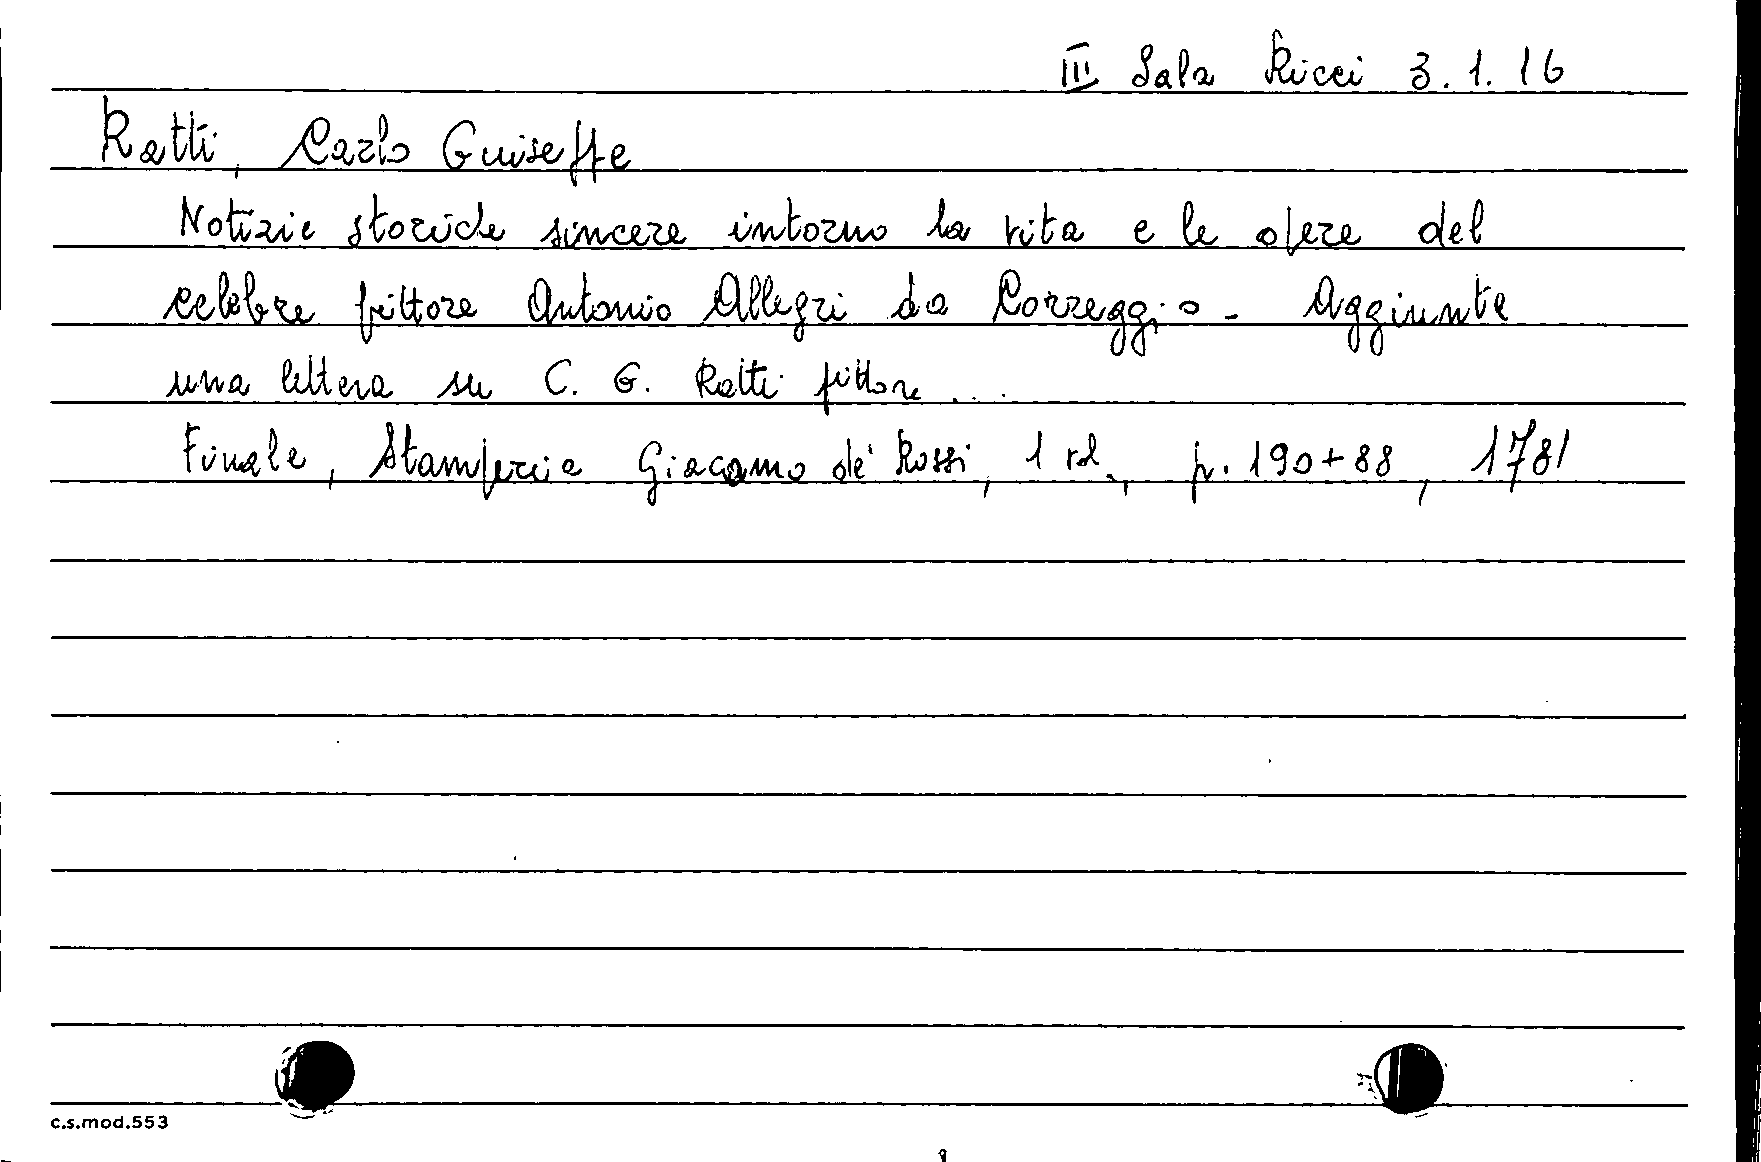 III Sala Ricci 3.1.16
Ratti, Carlo Guiseppe
Notizie storiche sincere intorno la vita e le opere del
celebre pittore Antonio Allegri da Correggio - Aggiunte
una lettera su C. G. Ratti pittore ...
Finale, Stamperia Giacomo de' Rossi, 1 vol., p. 190+88, 1781
c.s.mod.553